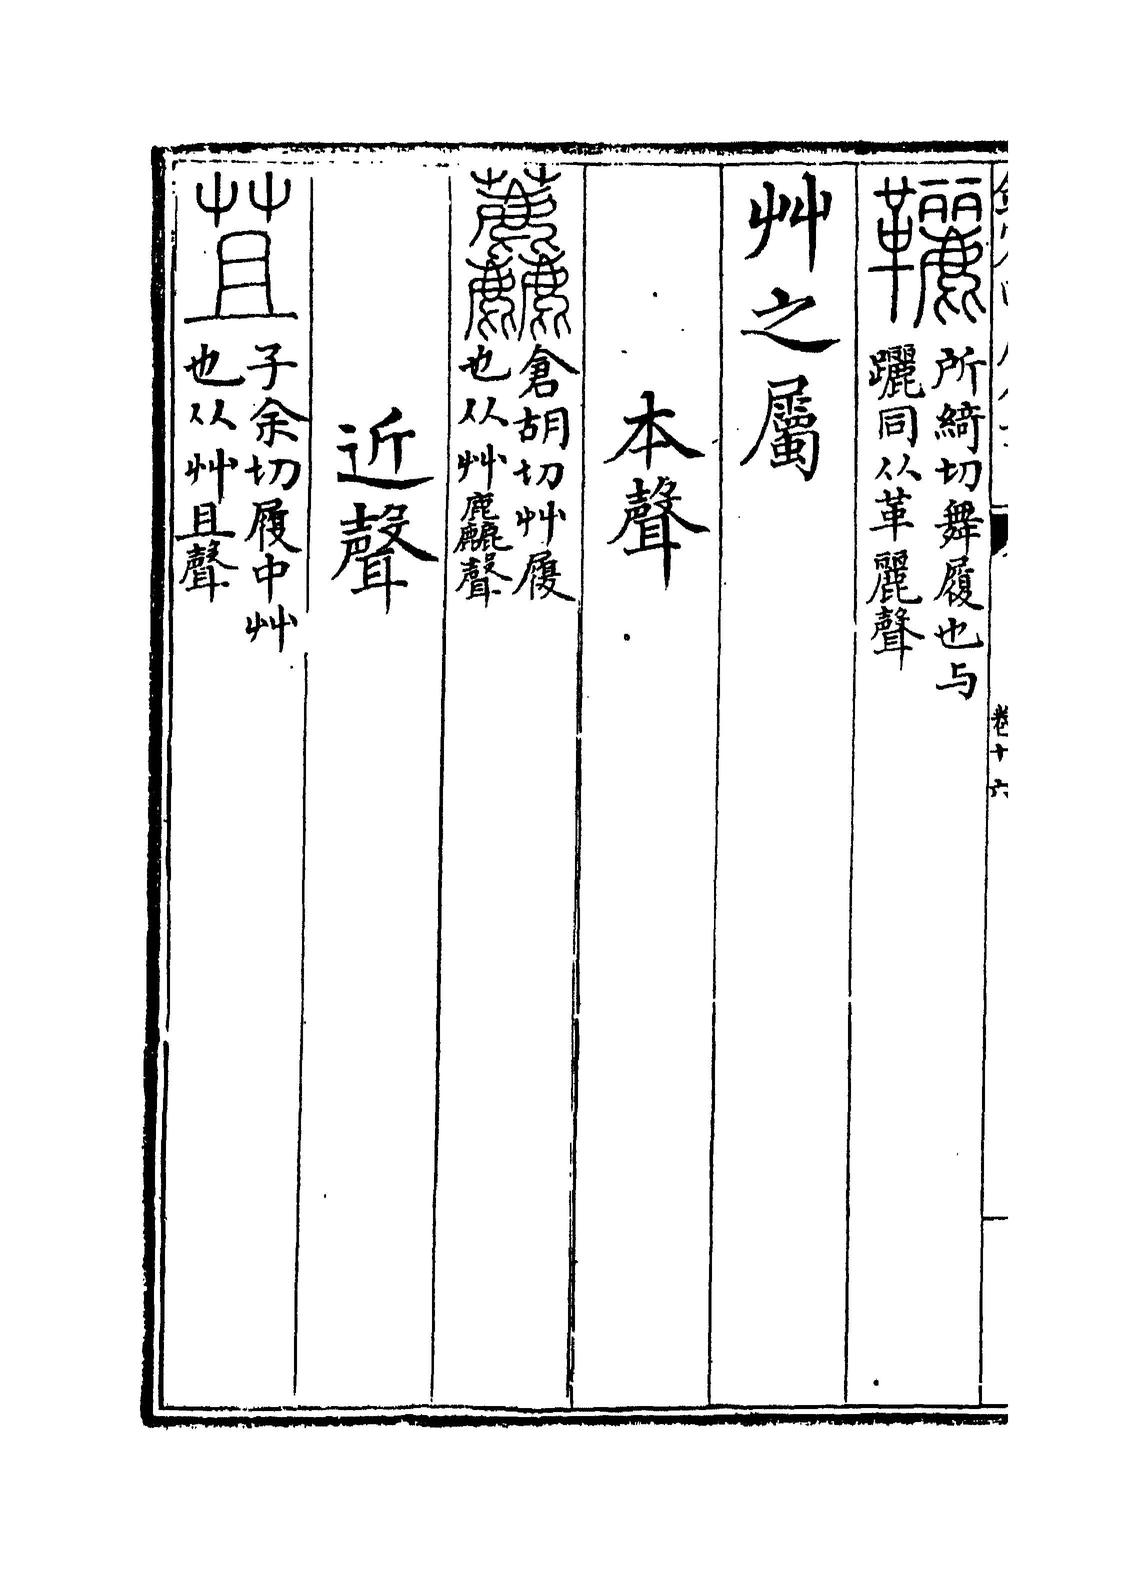 韉所綺切舞履也与
躧同从革麗聲
艸之屬
本聲
蘪倉胡切艸履
也从艸麤聲
近聲
苴子余切履中艸
也从艸且聲
卷十六